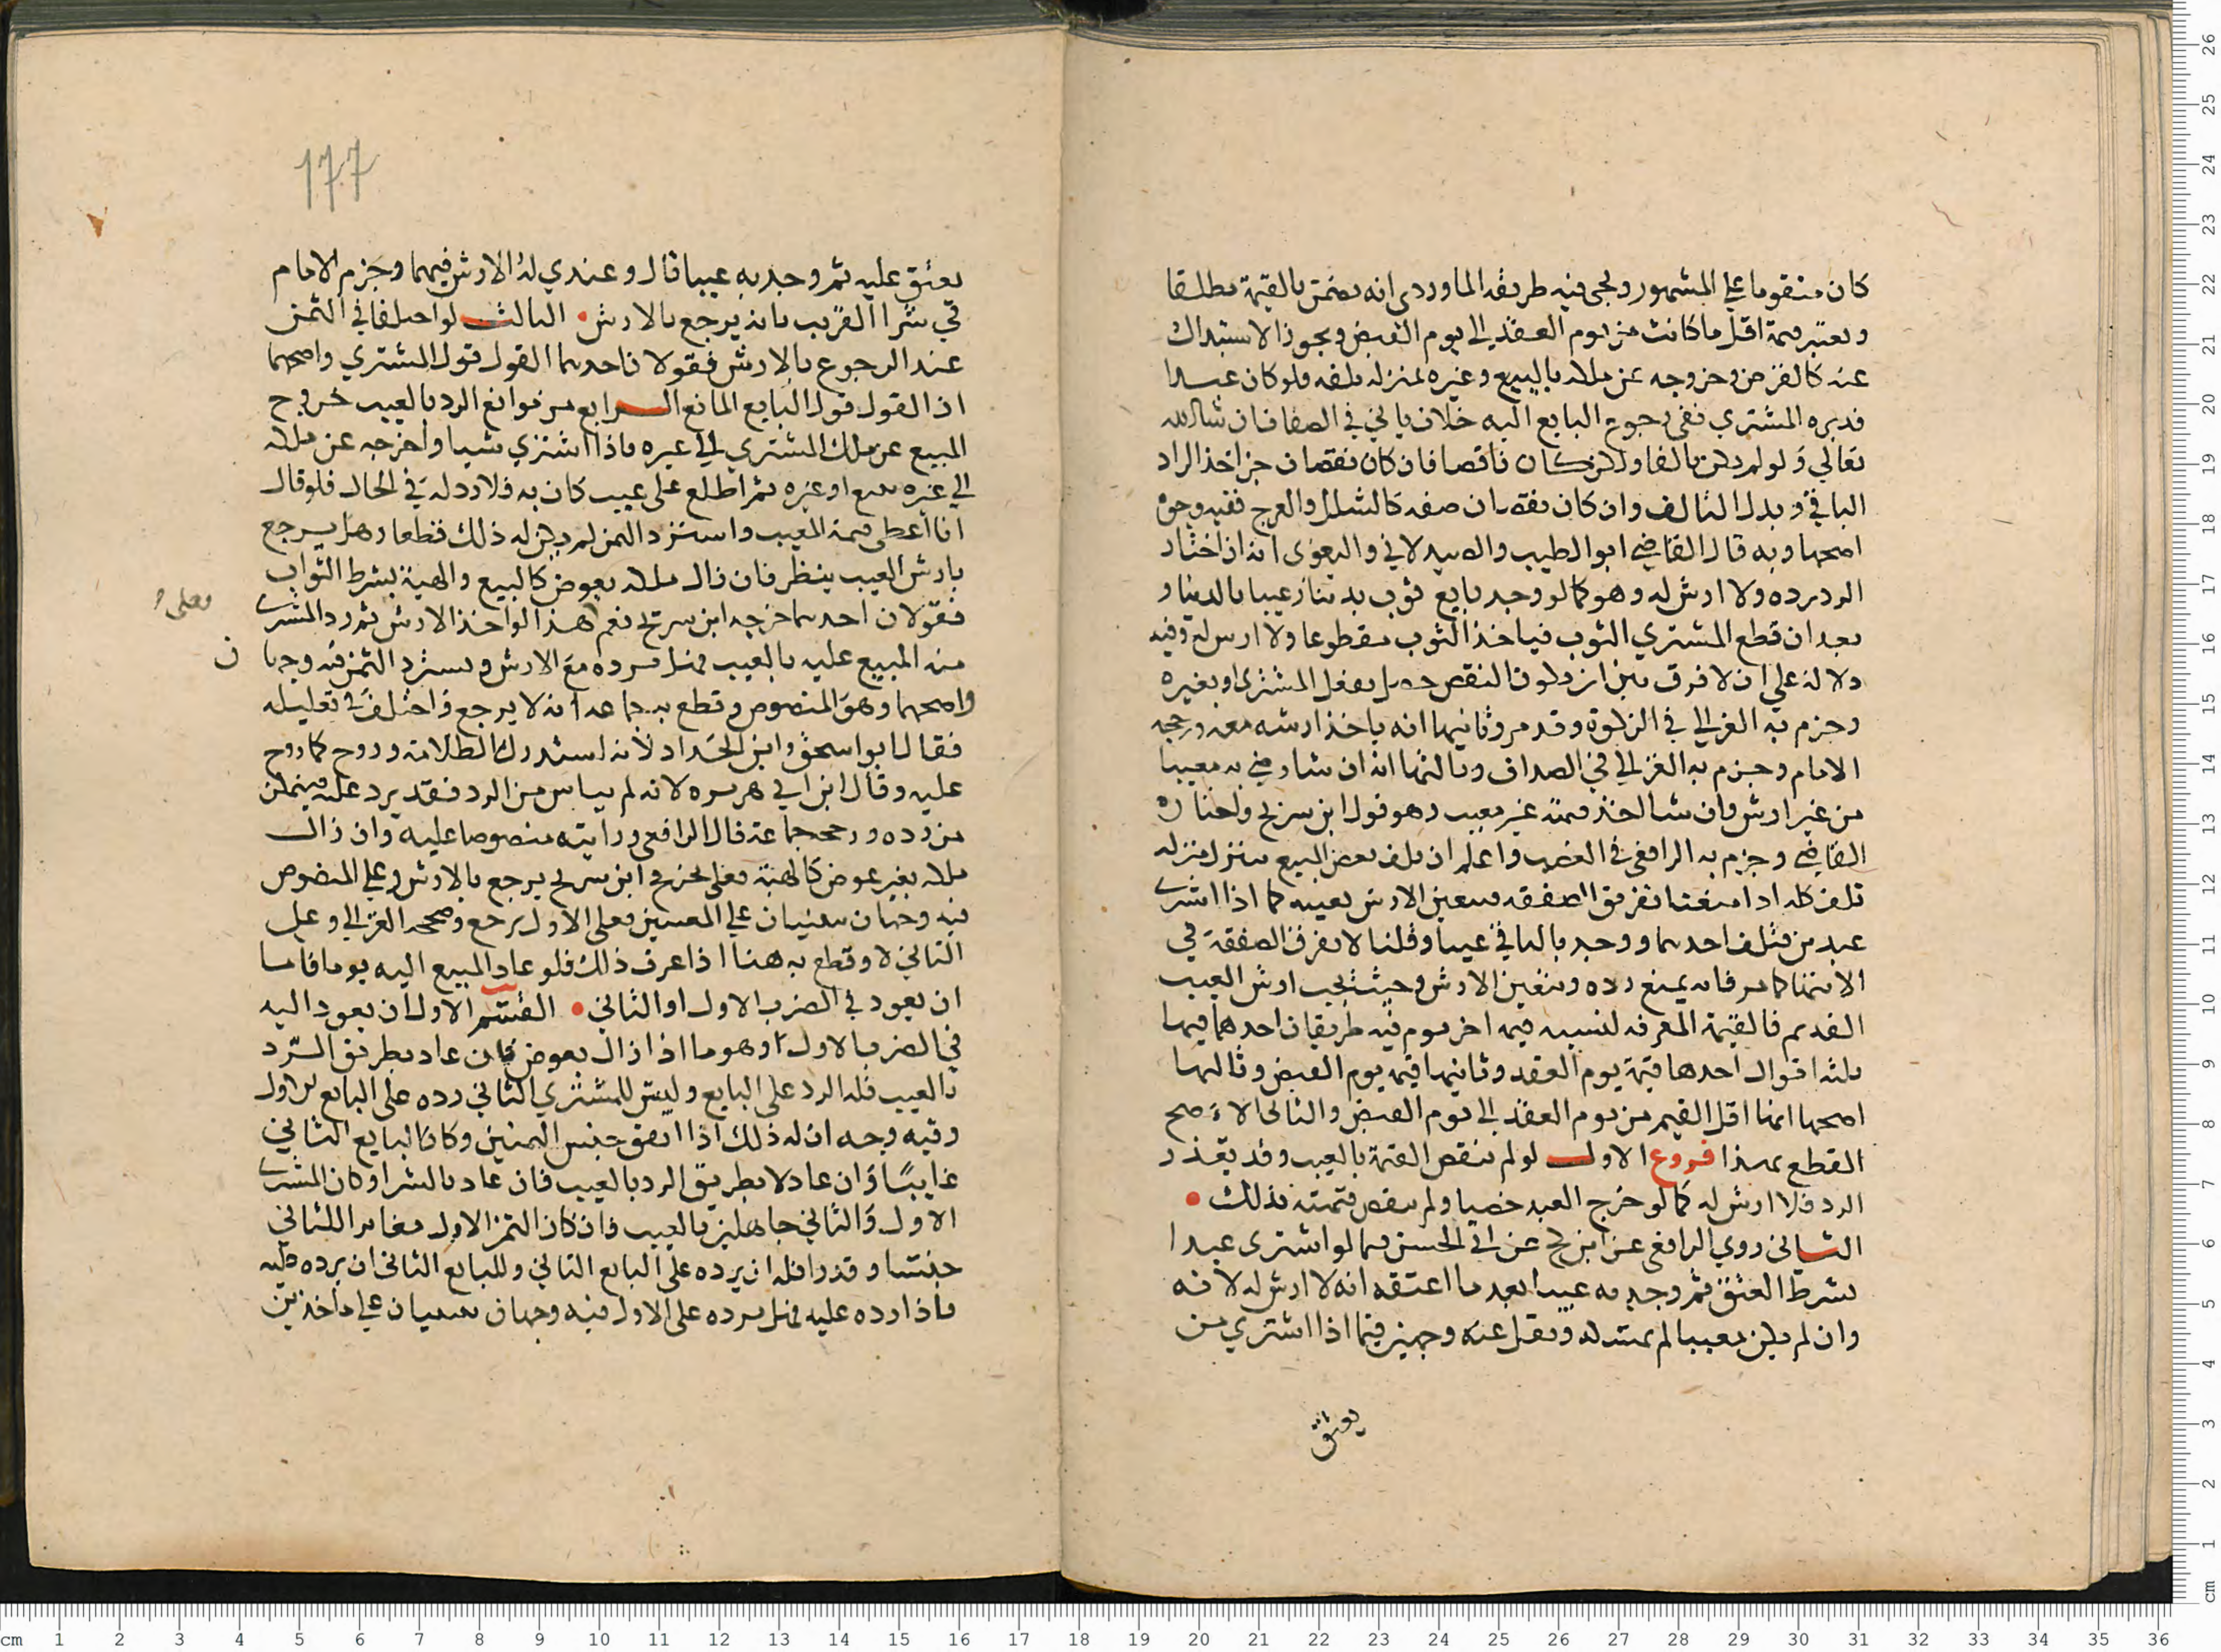 كان متقوما على المشهور ويجي فيه طريقة الماوردي انه يضمن بالقيمة مطلقا
ويعتبر قيمة اقل ما كانت من يوم العقد الى يوم القبض ويجوز الاستبدال
عنه كالقرض وخروجه عن ملكه بالبيع وغيره بمنزلة تلفه فلو كان عبدا
فدبره المشتري ففي رجوع البايع اليه خلاف ياتي في الصفا فان شا الله
تعالى ولو لم يكن تالفا ولكن كان ناقصا فان كان نقصان جز اخذ الراد
الباقي وبدل التالف وان كان نقصان صفه كالشلل والعرج ففيه وجوه
اصحها وبه قال القاضي ابو الطيب والصيدلاني والبغوى انه ان اختار
الرد رده ولا ارش له وهو كما لو وجد بايع ثوب بدينار عيبا بالدينار
بعد ان قطع المشتري الثوب فياخذ الثوب مقطوعا ولا ارش له وفيه
دلالة على ان لا فرق بين ان يكون النقص حصل بفعل المشترى او بغيره
وجزم به الغزالي في الزكوة وقد مر وثانيها انه ياخذ ارشه معه ورجحه
الامام وجزم به الغزالي في الصداق وثالثها انه ان شا رضي به معيبا
من غير ارش وان شا اخذ قيمته غير معيب وهو قول ابن سريج واختاره
القاضي وجزم به الرافعي في الغصب واعلم ان تلف بعض المبيع ينزل منزلة
تلف كله اذا منعنا تفريق الصفقه فيتعين الارش بعيبه كما اذا اشترى
عبدين فتلف احدهما ووجد بالباقي عيبا وقلنا لا يفرق الصفقة في
الانتها كما مر فانه يمتنع رده ويتعين الارش وحيث يجب ارش العيب
القديم فالقيمة المعرفه لنسبته قيمة اخر يوم فيه طريقان احدهما فيها
ثلثه اقوال احدها قيمة يوم العقد وثانيها قيمة يوم القبض وثالثها
اصحها انها اقل القيم من يوم العقد الى يوم القبض والثانى الاصح
القطع بهذا فروع الاول لو لم تنقص القيمة بالعيب وقد تعذر
الرد فلا ارش له كما لو خرج العبد خصيا ولم ينقص قيمته بذلك
الثاني روي الرافعي عن ابن كج عن ابي الحسين فيما لو اشترى عبدا
بشرط العتق ثم وجد به عيبا بعد ما اعتقه انه لا ارش له لانه
وان لم يكن معيبا لم يمسكه ونقل عنه وجهين فيما اذا اشتري من
يعتق
177
يعتق عليه ثم وجد به عيبا قال وعندي له الارش فيهما وجزم الامام
في شرا القريب بانه يرجع بالارش الثالث لو اختلفا في الثمن
عند الرجوع بالارش فقولان احدهما القول قول المشتري واصحهما
ان القول قول البايع المانع الرابع من موانع الرد بالعيب خروج
المبيع عن ملك المشتري الى غيره فاذا اشتري شيا واخرجه عن ملكه
الى غيره ببيع او غيره ثم اطلع على عيب كان به فلا رد له في الحال فلو قال
انا اعطى قيمة المعيب واسترد الثمن لم يكن له ذلك قطعا وهل يرجع
بارش العيب ينظر فان زال ملكه بعوض كالبيع والهبة بشرط الثواب
فقولان احدهما خرجه ابن سريج نعم فعلى هذا لو اخذ الارش ثم رد المشترى
منه المبيع عليه بالعيب فهل يرده مع الارش ويسترد الثمن فيه وجهان
واصحهما وهو المنصوص وقطع به جماعه انه لا يرجع واختلف في تعليله
فقال ابو اسحق وابن الحداد لانه استدرك الظلامة وروج كما روج
عليه وقال ابن ابي هريره لانه لم يياس من الرد فقد يرد عليه فيتمكن
من رده ورجحه جماعة قال الرافعي ورايته منصوصا عليه وان زال
ملكه بغير عوض كالهبة فعلى تخريج ابن سريج يرجع بالارش وعلى المنصوص
فيه وجهان مبنيان على المعنيين فعلى الاول يرجع وصححه الغزالي وعلى
الثاني لا وقطع به هنا اذا عرف ذلك فلو عاد المبيع اليه يوما فاما
ان يعود في الضرب الاول او الثاني القسم الاول ان يعود اليه
في الضرب الاول وهو ما اذا زال بعوض فان عاد بطريق الرد
بالعيب فله الرد على البايع وليس للمشتري الثاني رده على البايع الاول
وفيه وجه ان له ذلك اذا اتفق جنس الثمنين وكان البايع الثاني
غايبا وان عاد لا بطريق الرد بالعيب فان عاد بالشرا وكان المشترى
الاول والثاني جاهلين بالعيب فان كان الثمن الاول مغايرا للثاني
جنسا وقدرا فله ان يرده على البايع الثاني وللبايع الثانى ان يرده عليه
فاذا رده عليه فهل يرده على الاول فيه وجهان مبنيان على ماخذين